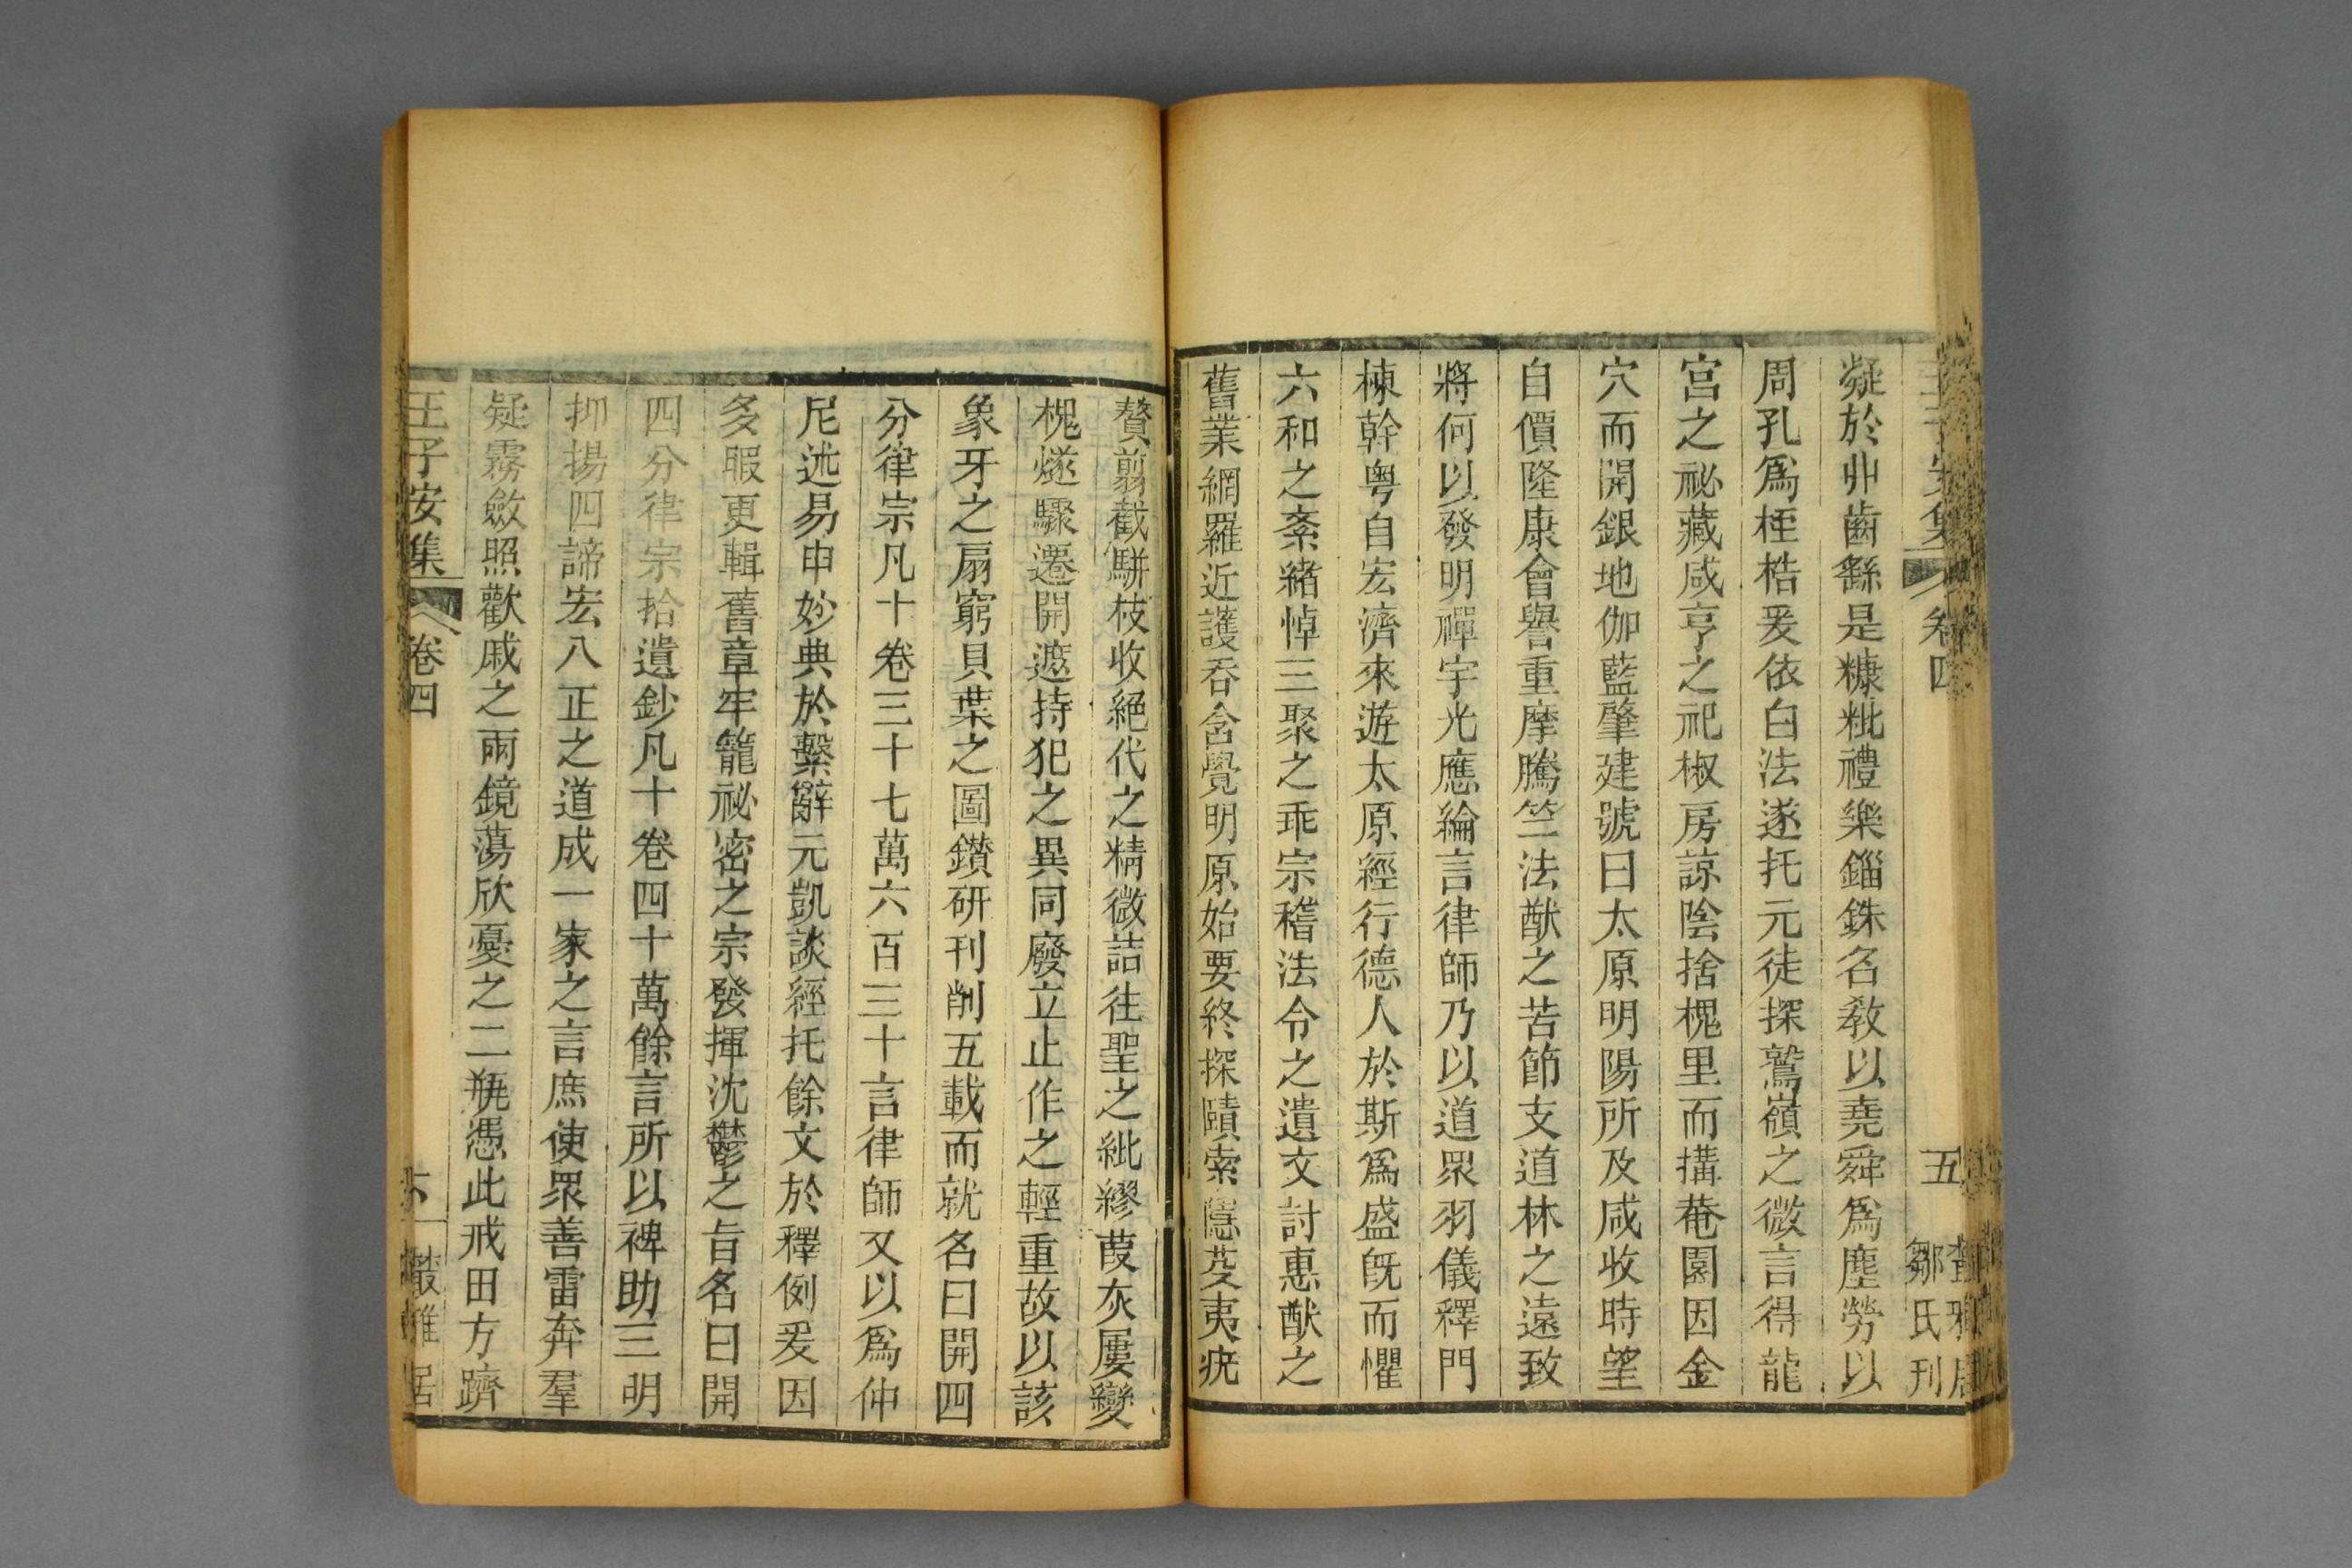 王子安集 卷四 五
叢雅居
鄒氏刊
凝於丱齒繇是糠粃禮樂錙銖名教以堯舜爲塵勞以
周孔爲桎梏爰依白法遂托元徒探鷲嶺之微言得龍
宮之祕藏咸亨之祀椒房諒陰捨槐里而搆菴園因金
穴而開銀地伽藍肇建號曰太原明陽所及咸收時望
自價隆康會譽重摩騰竺法猷之苦節支道林之遠致
將何以發明禪宇光應綸言律師乃以道眾羽儀釋門
棟幹粤自宏濟來遊太原經行德人於斯爲盛旣而懼
六和之紊緒悼三聚之乖宗稽法令之遺文討惠猷之
舊業網羅近護吞含覺明原始要終探賾索隱芟夷疣
贅翦截駢枝收絕代之精微詰往聖之紕繆葭灰屢變
槐燧驟遷開遮持犯之異同廢立止作之輕重故以該
象牙之扇窮貝葉之圖鑽研刊削五載而就名曰開四
分律宗凡十卷三十七萬六百三十言律師又以爲仲
尼述易申妙典於繫辭元凱談經托餘文於釋例爰因
多暇更輯舊章牢籠祕密之宗發揮沈鬱之旨名曰開
四分律宗拾遺鈔凡十卷四十萬餘言所以裨助三明
抑揚四諦宏八正之道成一家之言庶使眾善雷奔羣
疑霧斂照歡戚之兩鏡蕩欣憂之二瓶憑此戒田方躋
王子安集 卷四 六 叢雅居